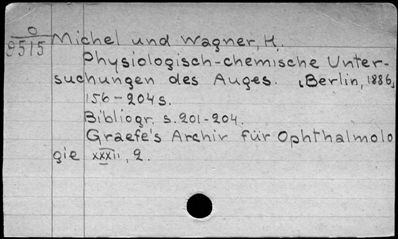 O Michel und Wagner, H.
9515
Physiologisch-chemische Unter-
suchungen des Auges. (Berlin, 1886,
156-204 s.
Bibliogr. s. 201-204.
Graefe's Archiv für Ophthalmolo
gie xxxii, 2.